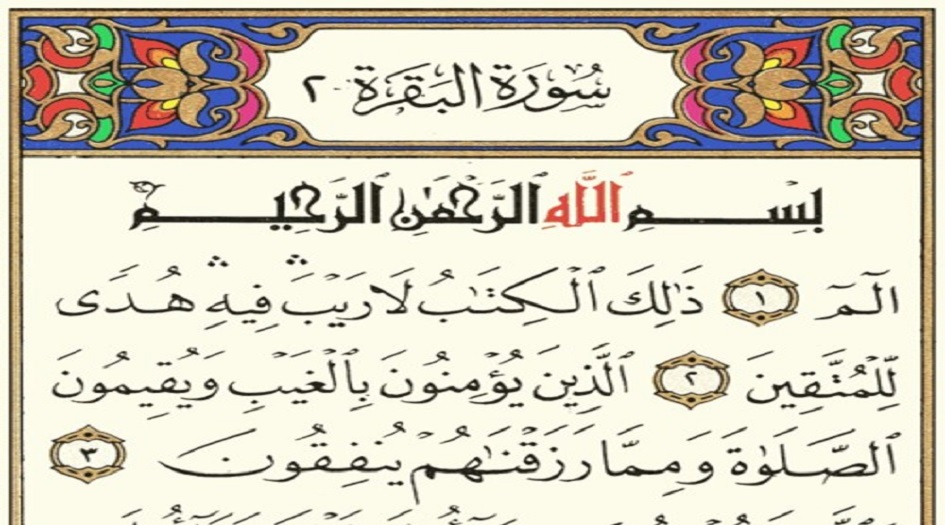 سُورَةُ البَقَرَةِ ٢
بِسْمِ ٱللَّهِ ٱلرَّحْمَٰنِ ٱلرَّحِيمِ
الٓمٓ ١ ذَٰلِكَ ٱلْكِتَٰبُ لَا رَيْبَ ۛ فِيهِ ۛ هُدًى
لِّلْمُتَّقِينَ ٢ ٱلَّذِينَ يُؤْمِنُونَ بِٱلْغَيْبِ وَيُقِيمُونَ
ٱلصَّلَوٰةَ وَمِمَّا رَزَقْنَٰهُمْ يُنفِقُونَ ٣